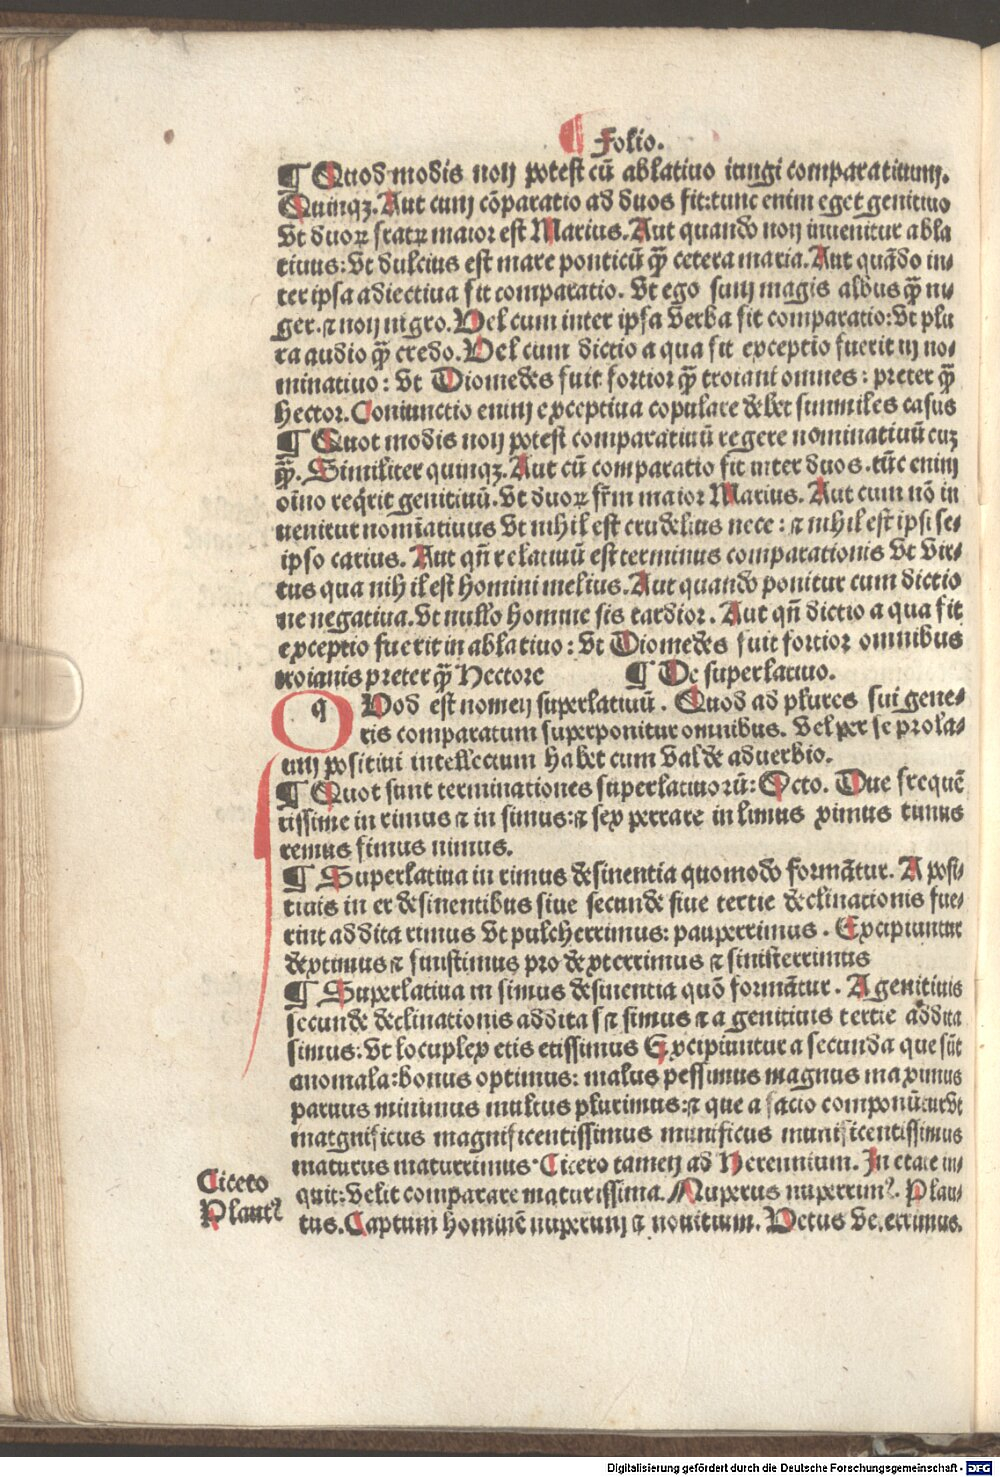 ¶ Folio.
¶ Quod modis non potest cū ablatiuo iungi comparatiuum.
Quinqꝫ. Aut cum cōparatio ad duos fit: tunc enim eget genitiuo
Vt duoꝝ fratꝝ maior est Marius. Aut quando non inuenitur abla
tiuus: Vt dulcius est mare ponticū qꝫ̄ cetera maria. Aut quādo in-
ter ipsa adiectiua fit comparatio. Vt ego sum magis albus qꝫ̄ ni-
ger. ⁊ non nigro. Vel cum inter ipsa verba fit comparatio: Vt plu
ra audio qꝫ̄ credo. Vel cum dictio a qua fit exceptio fuerit in no-
minatiuo: Vt Diomedes fuit fortior qꝫ̄ troiani omnes: preter qꝫ̄
Hector. Coniunctio enim exceptiua copulare debet summiles casus
¶ Quot modis non potest comparatiuū regere nominatiuū cuꝫ
qꝫ̄. Similiter quinqꝫ. Aut cū comparatio fit inter duos. tūc enim
oīno reqͥrit genitiuū. Vt duoꝝ fr̄m maior Marius. Aut cum nō in
uenitur nomīatiuus Vt nihil est crudelius nece: ⁊ nihil est ipsi se-
ipso carius. Aut qn̄ relatiuū est terminus comparationis Vt vir-
tus qua nihil est homini melius. Aut quando ponitur cum dictio
ne negatiua. Vt nullo homine sis tardior. Aut qn̄ dictio a qua fit
exceptio fuerit in ablatiuo: Vt Diomedes fuit fortior omnibus
troianis preter qꝫ̄ Hectore ¶ De superlatiuo.
q Vod est nomen superlatiuū. Quod ad plures sui gene-
ris comparatum superponitur omnibus. Vel per se prola-
tum positiui intellectum habet cum valde aduerbio.
¶ Quot sunt terminationes superlatiuorū: Octo. Due frequē
tissime in rimus ⁊ in simus: ⁊ sex perrare in limus ximus timus
remus fimus nimus.
¶ Superlatiua in rimus desinentia quomodo formātur. A posi-
tiuis in er desinentibus siue secunde siue tertie declinationis fue-
rint addita rimus Vt pulcherrimus: pauperrimus. Excipiuntur
dextimus ⁊ sinistimus pro dexterrimus ⁊ sinisterrimus
¶ Superlatiua in simus desinentia quō formātur. A genitiuis
secunde declinationis addita s ⁊ simus ⁊ a genitiuis tertie addita
simus: Vt locuplex etis etissimus Excipiuntur a secunda que sūt
anomala: bonus optimus: malus pessimus magnus maximus
paruus minimus multus plurimus: ⁊ que a facio componūtur Vt
matgnificus magnificentissimus munificus munificentissimus
maturus maturrimus. Cicero tamen ad Herennium. In etate in-
quit: velit comparare maturissima. Nuperus nuperrimꝰ. Plau-
tus. Captum hominē nuperum ⁊ nouitium. Vetus veterrimus.
Cicero
Plautꝰ
Digitalisierung gefördert durch die Deutsche Forschungsgemeinschaft - DFG